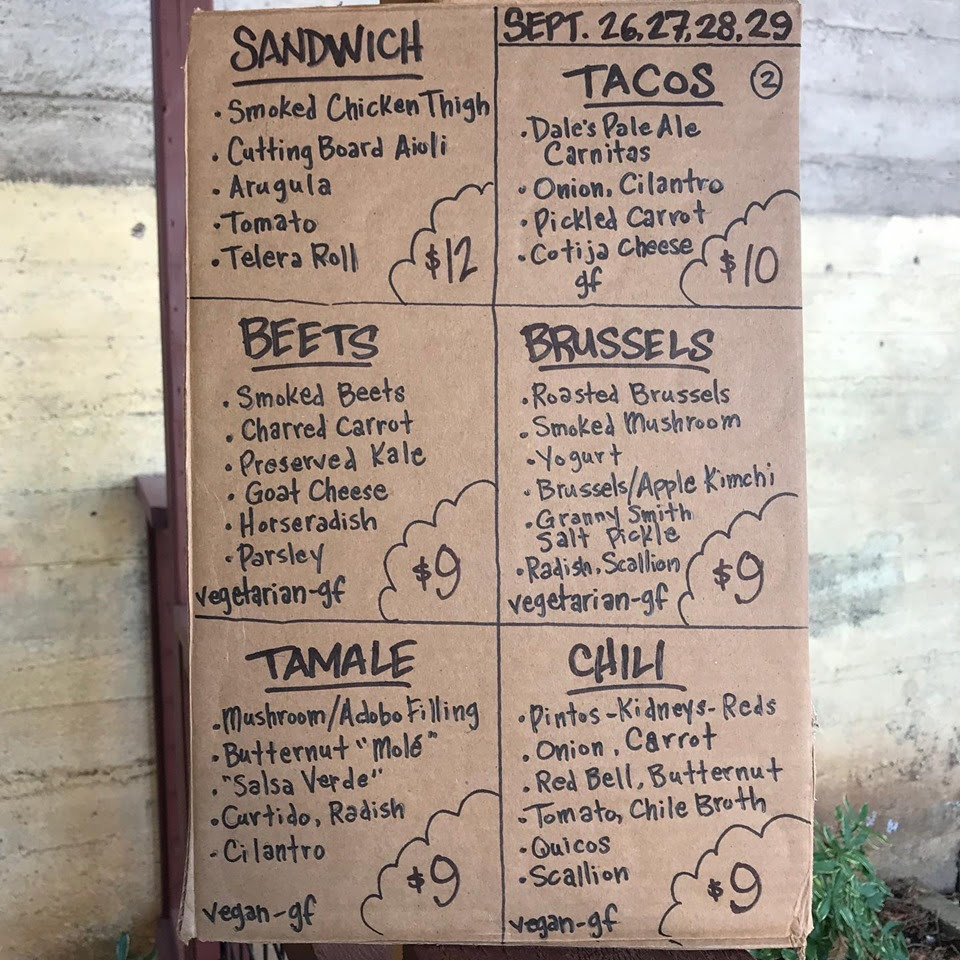 SANDWICH
• Smoked Chicken Thigh
• Cutting Board Aioli
• Arugula
• Tomato
• Telera Roll
$12
SEPT. 26, 27, 28, 29
TACOS ②
• Dale's Pale Ale
Carnitas
• Onion, Cilantro
• Pickled Carrot
• Cotija Cheese
gf
$10
BEETS
• Smoked Beets
• Charred Carrot
• Preserved Kale
• Goat Cheese
• Horseradish
• Parsley
vegetarian-gf
$9
BRUSSELS
• Roasted Brussels
• Smoked Mushroom
• Yogurt
• Brussels/Apple Kimchi
• Granny Smith
Salt Pickle
• Radish, Scallion
vegetarian-gf
$9
TAMALE
• Mushroom/Adobo Filling
• Butternut "Molé"
• "Salsa Verde"
• Curtido, Radish
• Cilantro
$9
vegan-gf
CHILI
• Pintos-Kidneys-Reds
• Onion, Carrot
• Red Bell, Butternut
• Tomato, Chile Broth
• Quicos
• Scallion
$9
vegan-gf